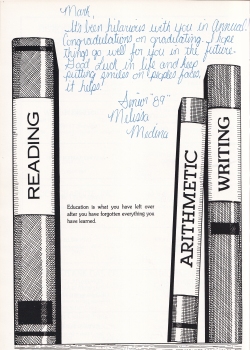 Mark,
It's been hilarious with you in Annual!
Congradulations on graduating. I hope
things go well for you in the future.
Good Luck in life and keep
putting smiles on peoples faces,
it helps!
Senior "89"
Melissa
Medina
READING
ARITHMETIC
WRITING
Education is what you have left over
after you have forgotten everything you
have learned.